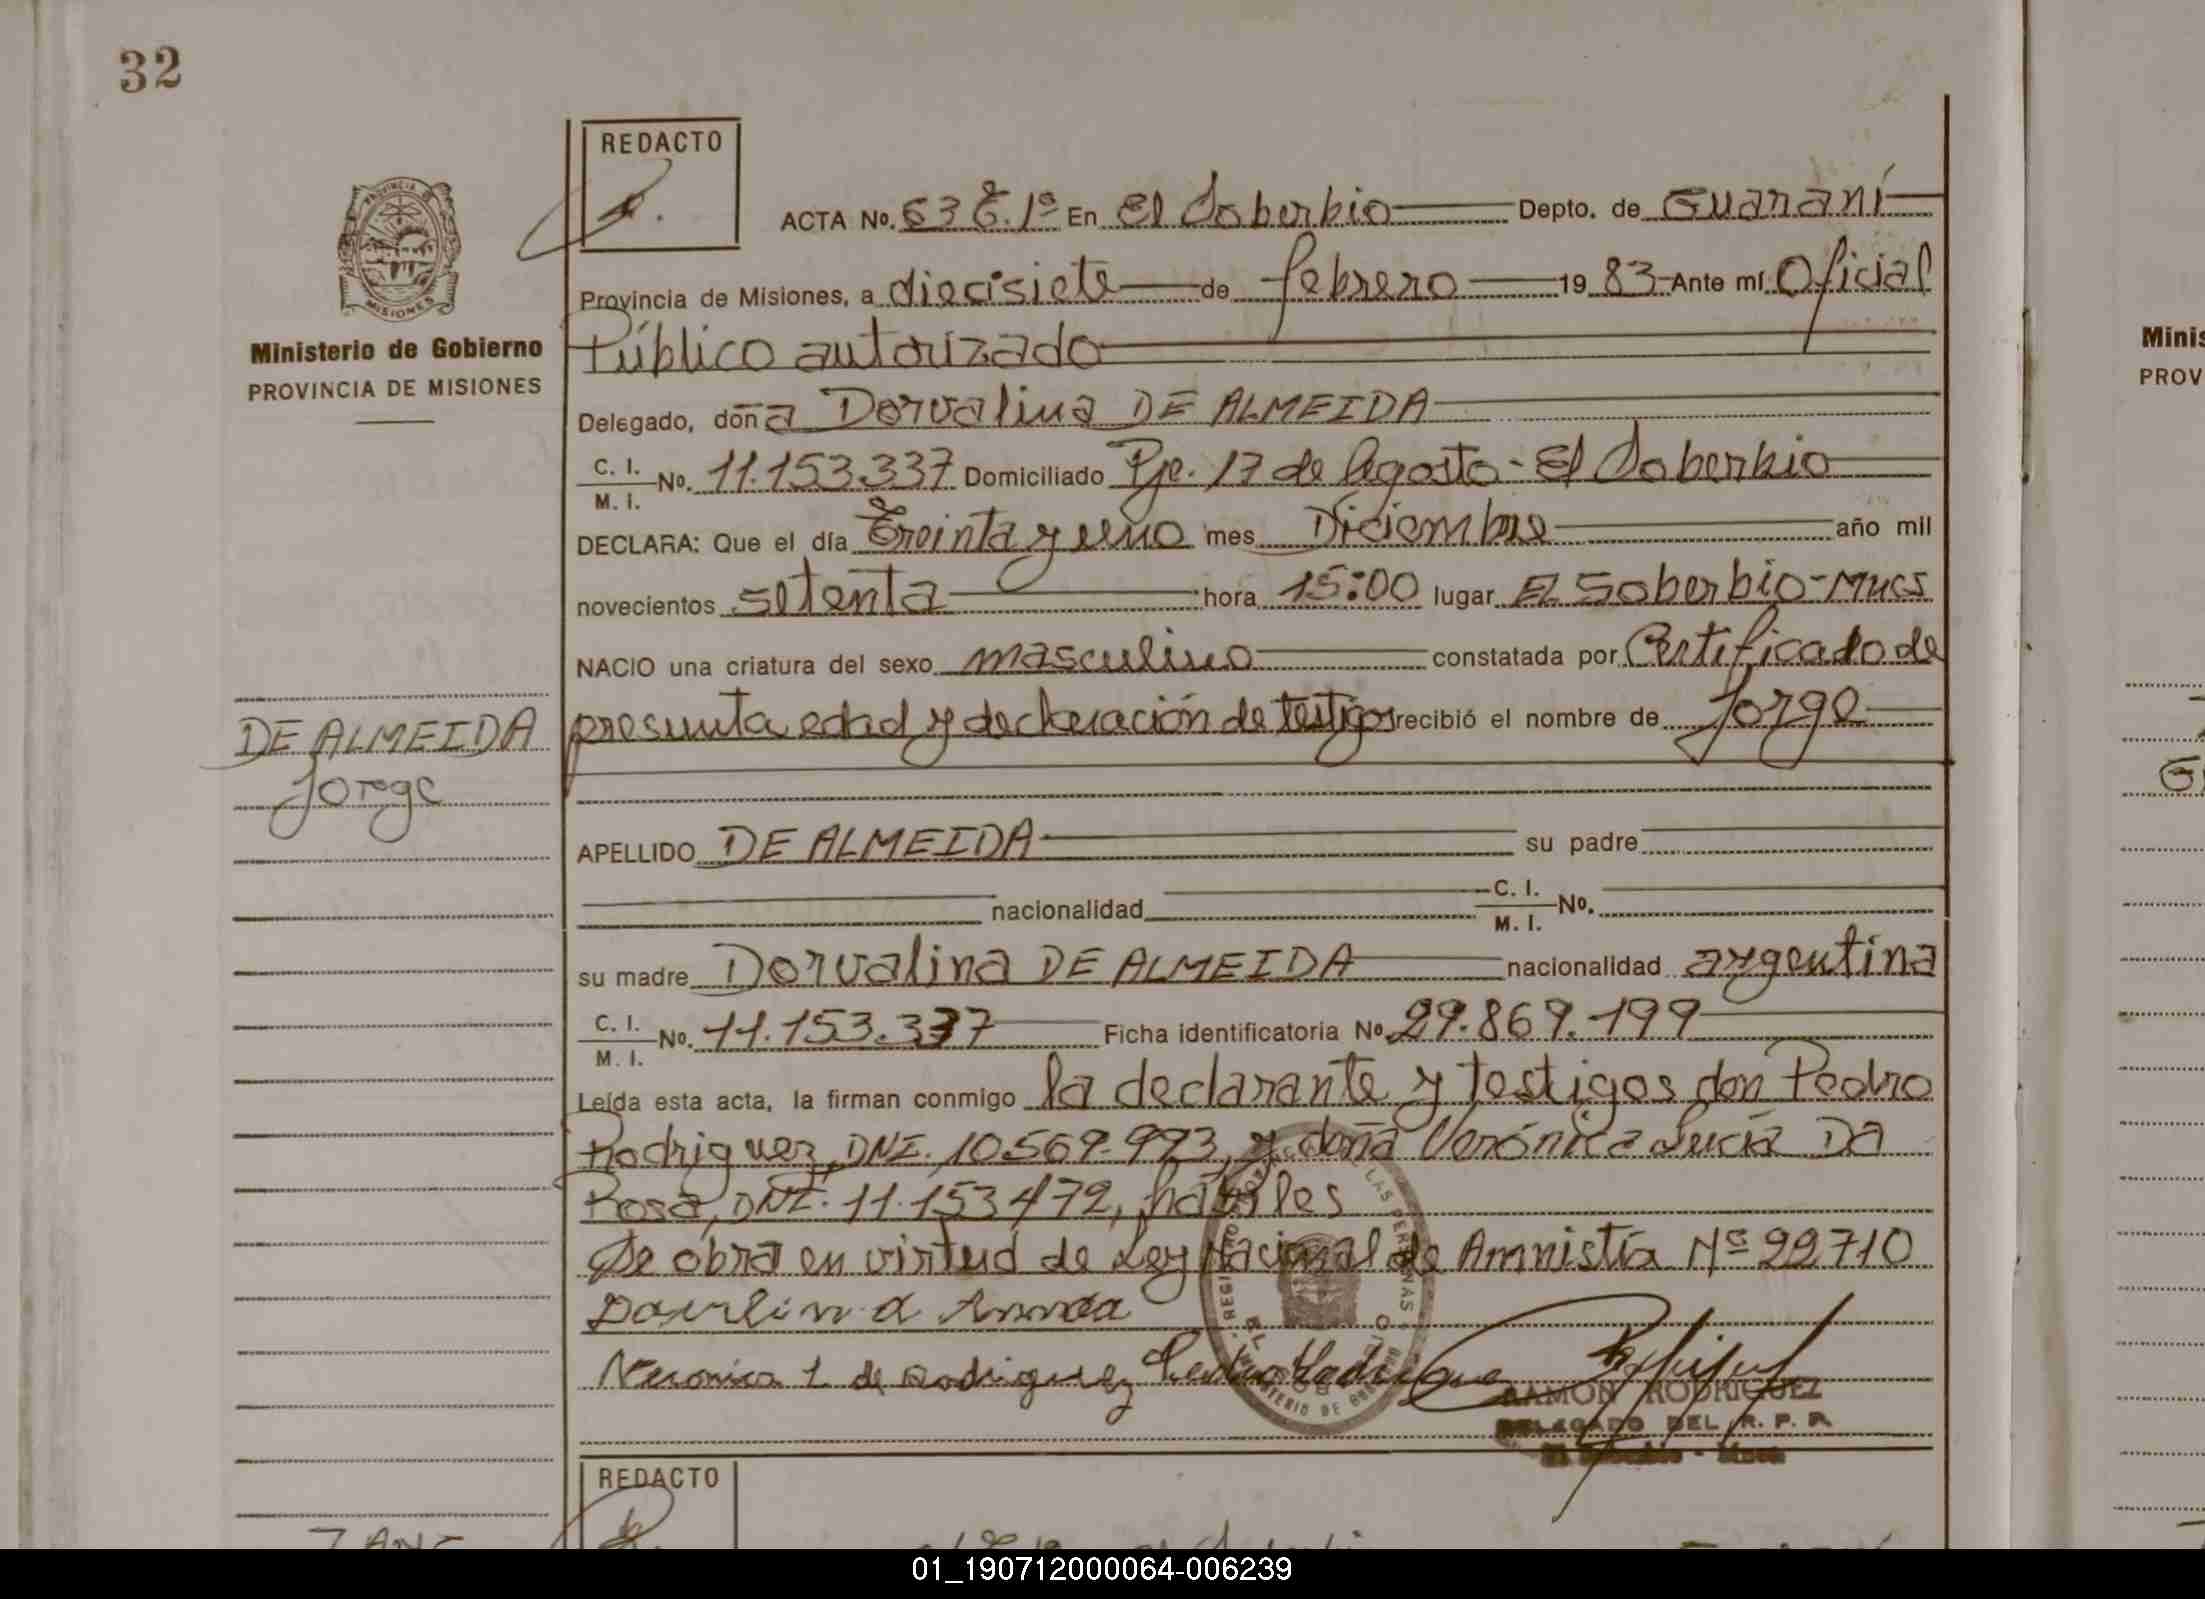 32
REDACTO
PROVINCIA DE
MISIONES
Ministerio de Gobierno
PROVINCIA DE MISIONES
ACTA No. 63 T. 1º En El Soberbio Depto. de Guaraní
Provincia de Misiones, a diecisiete de febrero 19 83 Ante mí Oficial
Público autorizado
Delegado, doña Dorvalina DE ALMEIDA
C. I. M. I. No. 11.153.337 Domiciliado Pje. 17 de Agosto - El Soberbio
DECLARA: Que el día Treinta y uno mes Diciembre año mil
novecientos setenta hora 15:00 lugar El Soberbio-Mnes
NACIO una criatura del sexo masculino constatada por Certificado de
presunta edad y declaración de testigos recibió el nombre de Jorge
DE ALMEIDA
Jorge
APELLIDO DE ALMEIDA su padre
nacionalidad C. I. M. I. No.
su madre Dorvalina DE ALMEIDA nacionalidad argentina
C. I. M. I. No. 11.153.337 Ficha identificatoria No 29.869.199
Leída esta acta, la firman conmigo la declarante y testigos don Pedro
Rodriguez, DNI. 10.569.993, y doña Verónica Lucía DA
Rosa, DNI. 11.153472, hábiles
Se obra en virtud de Ley Nacional de Amnistía Nº 22710
Veronica L de Rodriguez Pedro Rodrigue
RAMON RODRIGUEZ
DELEGADO DEL R. P. P.
El Soberbio - Mnes
REDACTO
Minis
PROV
01_190712000064-006239